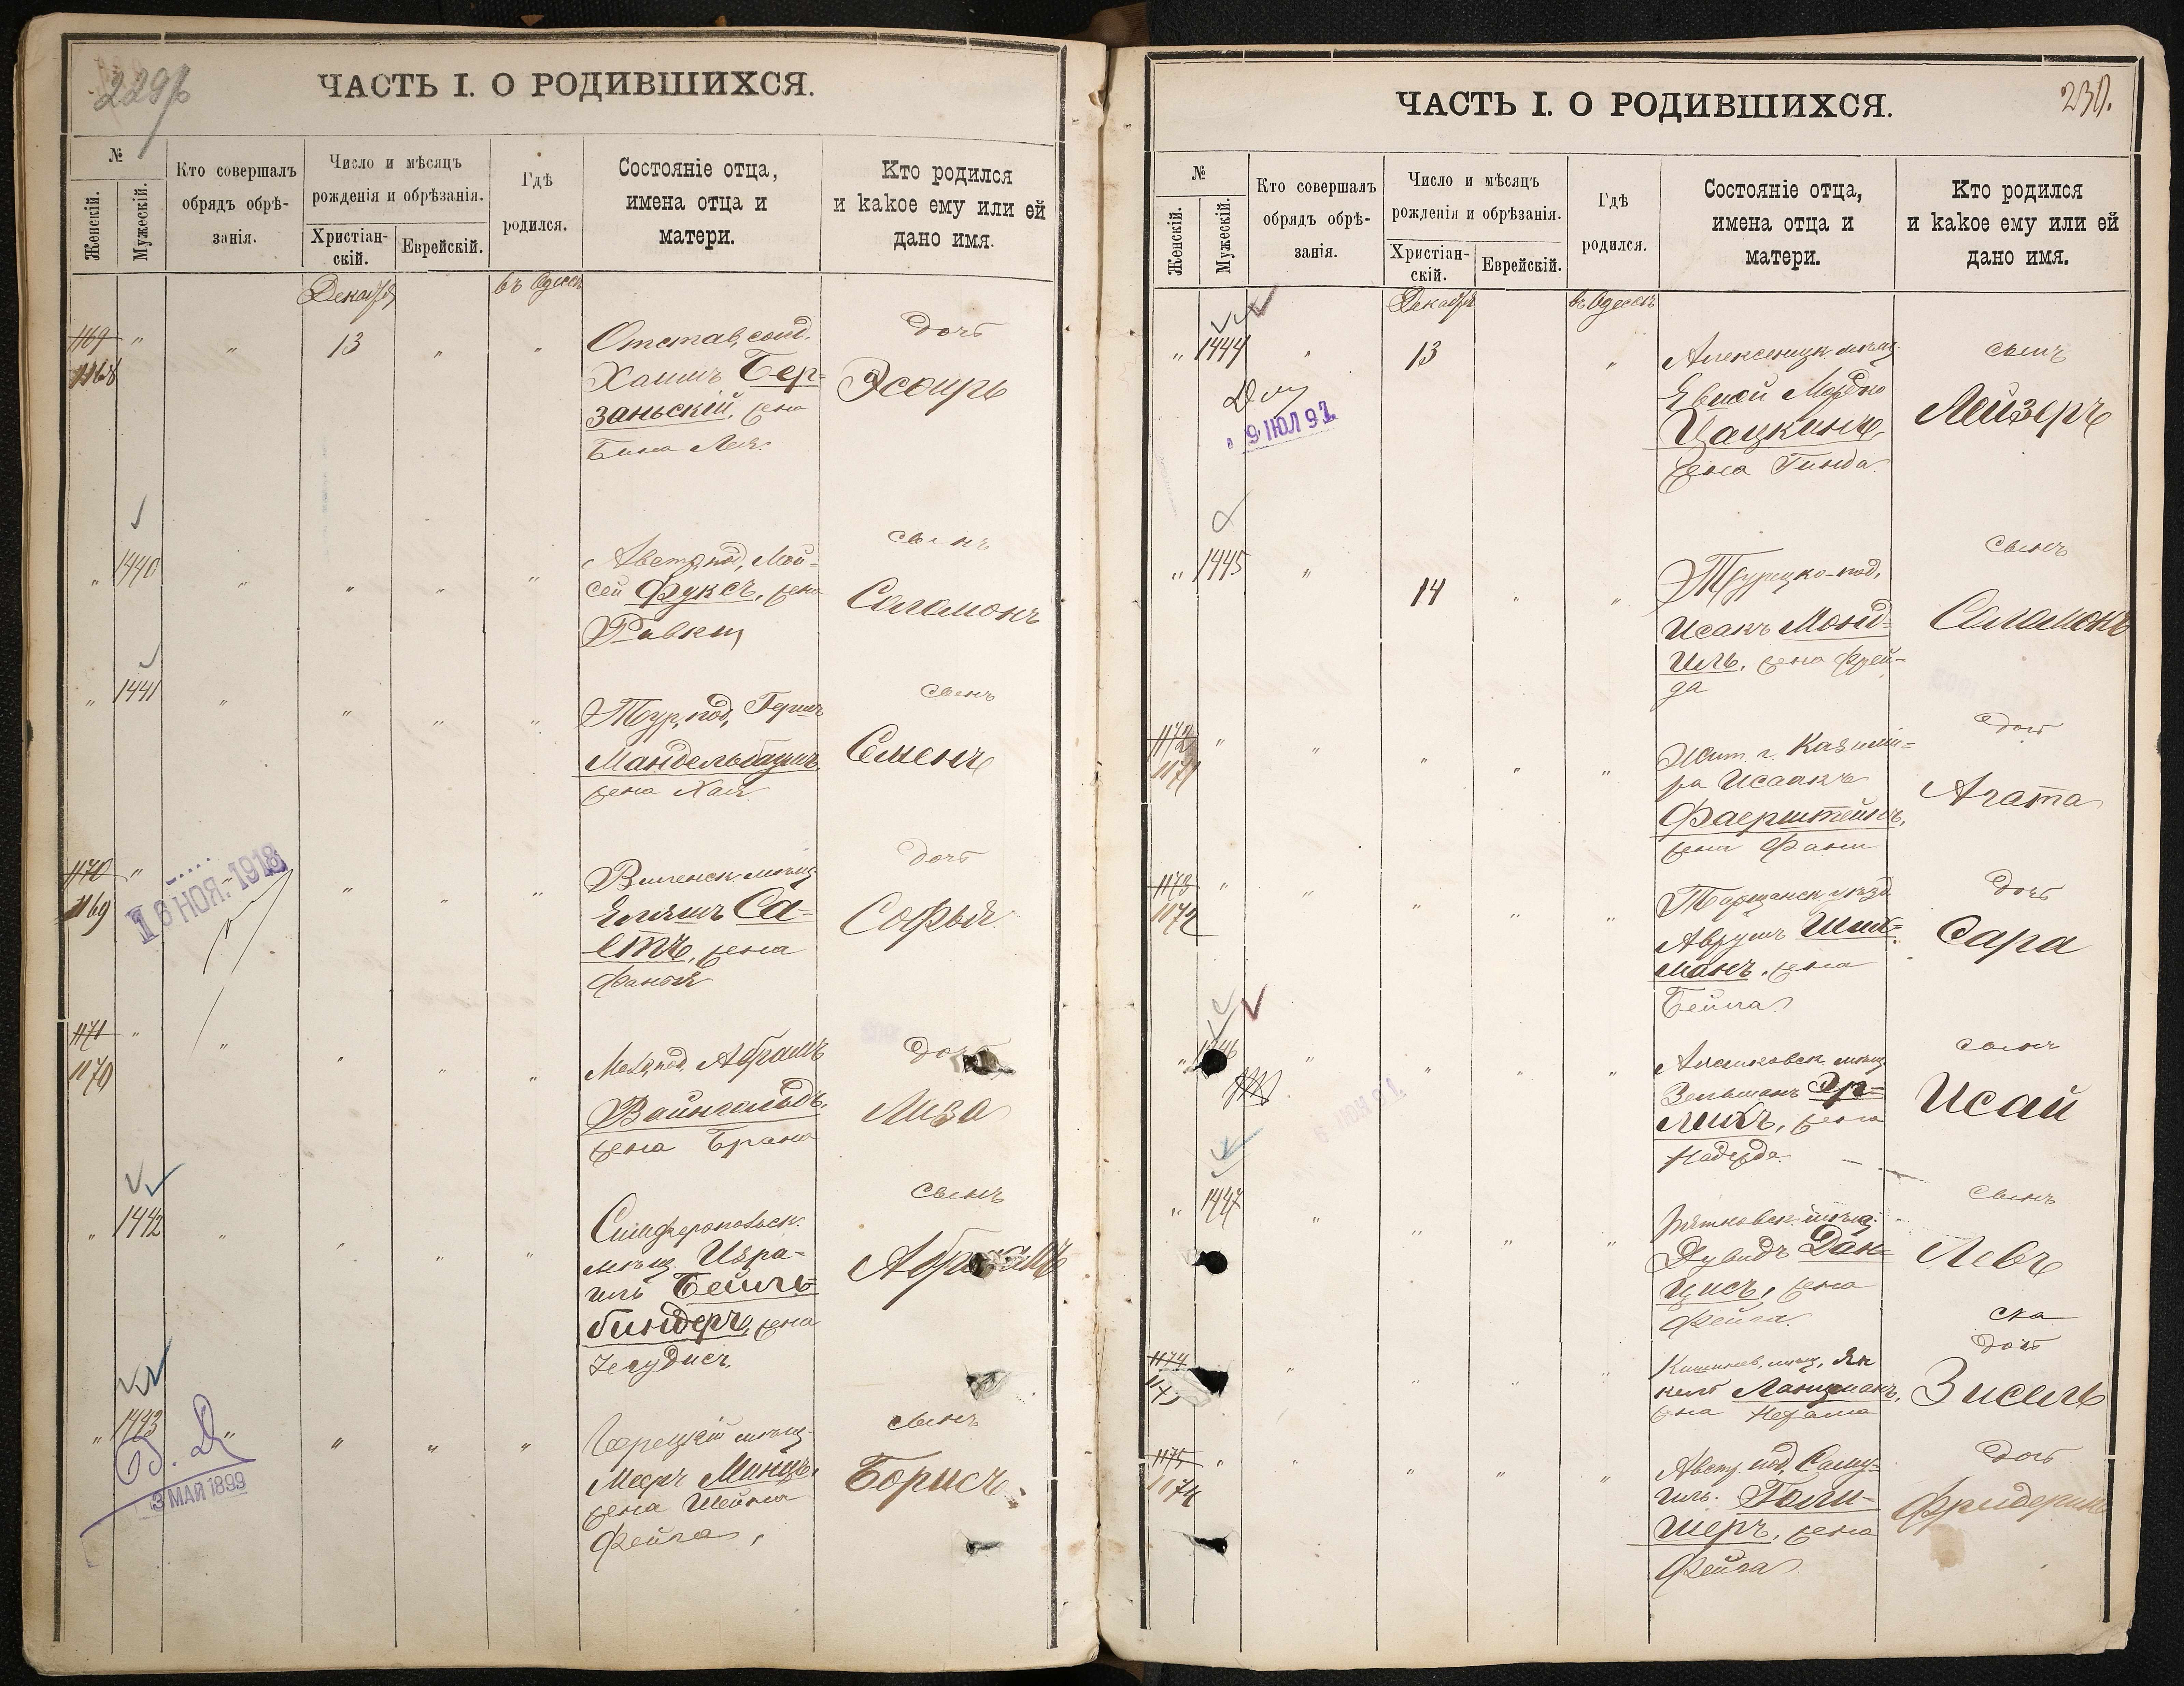 229
ЧАСТЬ I. О РОДИВШИХСЯ.
№
Женскій.
Мужескій.
Кто совершалъ
обрядъ обрѣ-
занія.
Число и мѣсяцъ
рожденія и обрѣзанія.
Христіан-
скій.
Еврейскій.
Гдѣ
родился.
Состояніе отца,
имена отца и
матери.
Кто родился
и какое ему или ей
дано имя.
Декабря
въ Одессѣ
1169 " " 13 " "
1168
Отстав, солд.
Хаимъ Бер=
заньскій, жена
Бина Лея.
дочь
Эсѳирь
" 1440 " " " "
Австр, под, Мой-
сей Фуксъ, жена
Ривка
сынъ
Соломонъ
" 1441 " " " "
Тур, под, Гершъ
Мандельбаумъ
жена Хая
сынъ
Семенъ
1170 " " " " "
1169
16 НОЯ. 1918
Виленск. мѣщ.
Ельяшъ Са-
етъ, жена
Фанья
дочь
Софья
1171 " " " " "
1170
под, Абрамъ
Вайнгольдъ,
жена Брана
дочь
Лиза
" 1442 " " " "
Симферопольск.
мѣщ. Изра-
иль Бейль=
биндеръ, жена
сынъ
Абрамъ
" 1443 " " " "
3 МАЙ 1899
мѣщ.
Мееръ Минцъ,
жена Шейна
Фейга,
сынъ
Борисъ
230.
ЧАСТЬ I. О РОДИВШИХСЯ.
№
Женскій.
Мужескій.
Кто совершалъ
обрядъ обрѣ-
занія.
Число и мѣсяцъ
рожденія и обрѣзанія.
Христіан-
скій.
Еврейскій.
Гдѣ
родился.
Состояніе отца,
имена отца и
матери.
Кто родился
и какое ему или ей
дано имя.
Декабря
въ Одессѣ
" 1444 " 13 "
9 ИЮЛ 97
мѣщ.
Мордко
Цацкинъ,
жена Гинда.
сынъ
Лейзеръ
" 1445 " 14 " "
Турецко-под,
Исакъ Монд=
иль, жена Фрей-
да
сынъ
Соломонъ
1172 " " " " "
1171
Жит. г. Казими=
ра Исаакъ
Фаерштейнъ,
жена Фани
дочь
Агата
1173 " " " " "
1172
Таращанск. уѣзд.
Аврумъ Шил=
манъ, жена
Бейла
дочь
Сара
" 1446 " " " "
мѣщ.
Зельманъ Эр=
лихъ, жена
Надежда.
сынъ
Исай
" 1447 " " " "
мѣщ.
Дувидъ Дан=
цисъ, жена
Фейга.
сынъ
Левъ
ска
1174 " " " "
Кишинев, мѣщ, Ян
кель Ланцманъ,
жена Нехама
дочь
Зисель
1175 " " " " "
1174
Австр. под, Саму=
иль. Голи-
шеръ, жена
Фейга
дочь